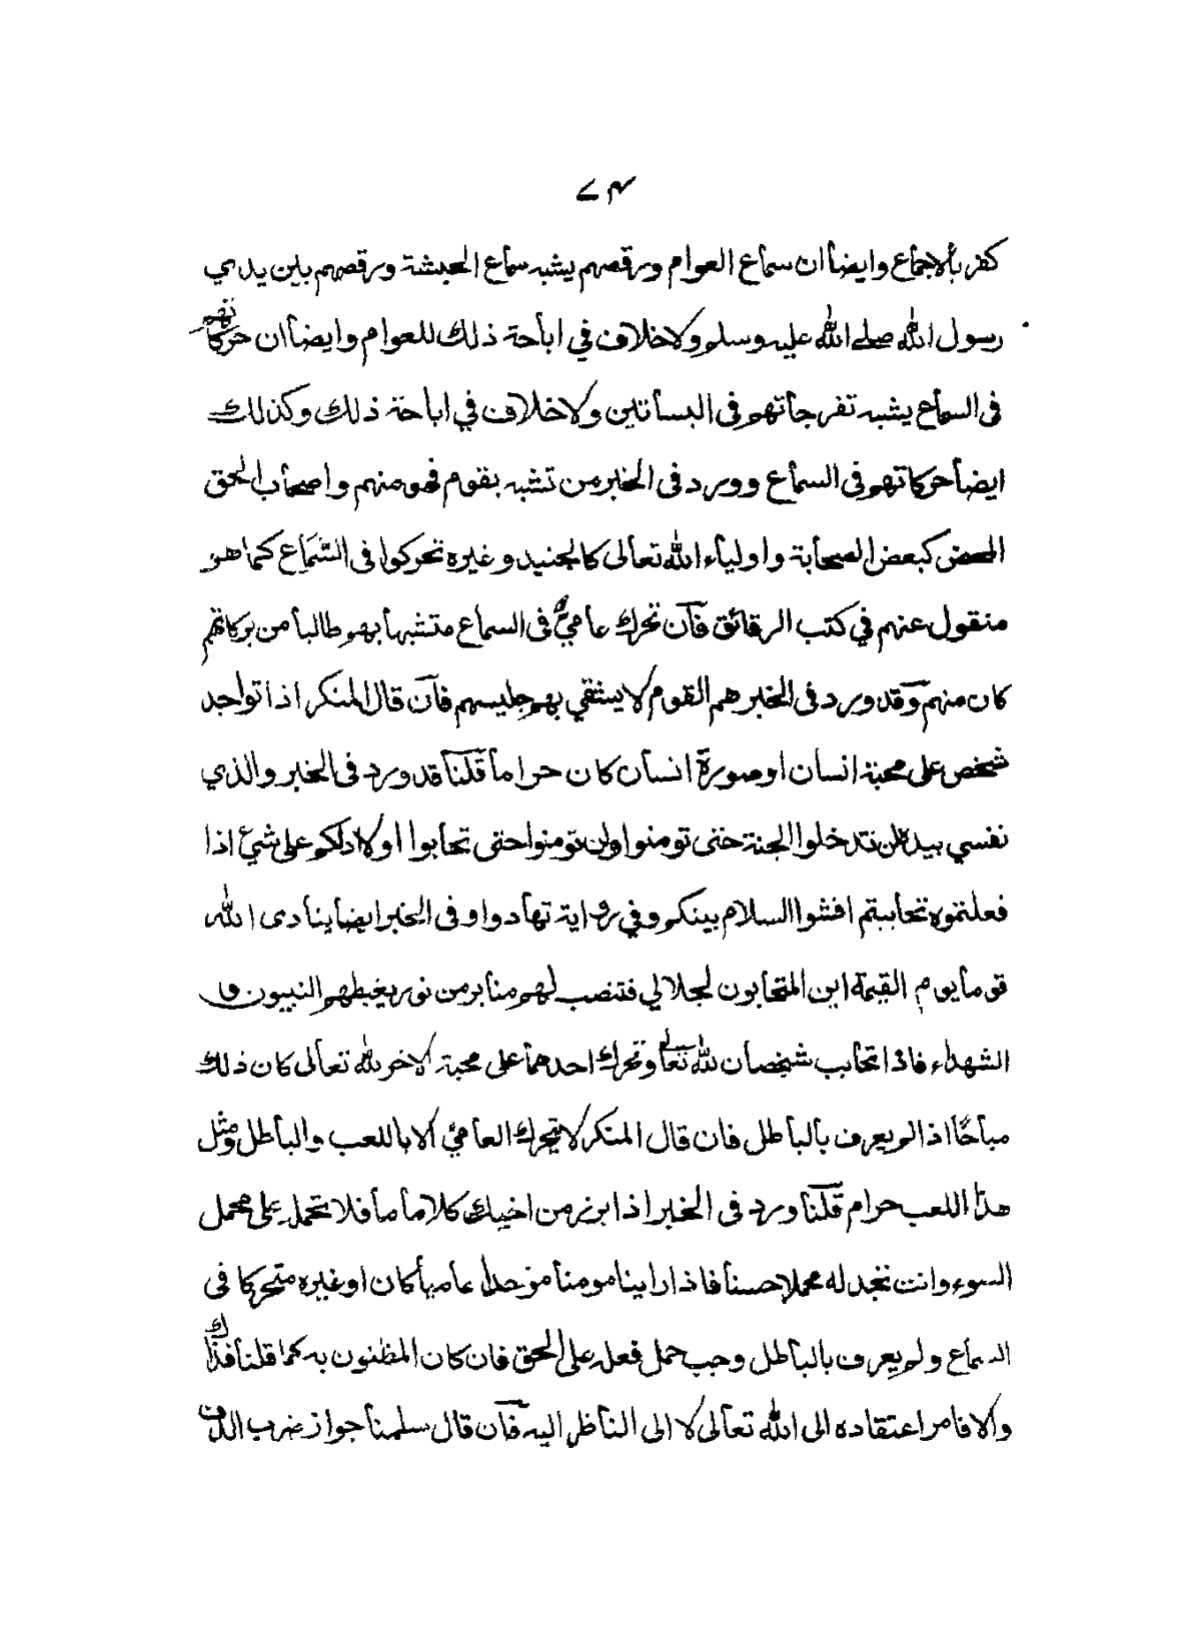 ٧٤
كفر بالاجماع وايضا ان سماع العوام ورقصهم يشبه سماع الحبشة ورقصهم بين يدي
رسول الله صلى الله عليه وسلم ولاخلاف في اباحة ذلك للعوام وايضا ان حركاتهم
في السماع يشبه تفرجاتهم في البساتين ولاخلاف في اباحة ذلك وكذلك
ايضا حركاتهم في السماع وورد في الخبر من تشبه بقوم فهو منهم واصحاب الحق
المحض كبعض الصحابة واولياء الله تعالى كالجنيد وغيره تحركوا في السَّمَاع كما هو
منقول عنهم في كتب الرقائق فان تحرك عاميٌّ في السماع متشبها بهم طالبا من بركاتهم
كان منهم وقد ورد في الخبر هم القوم لا يشقي بهم جليسهم فان قال المنكر اذا تواجد
شخص على محبة انسان او صورة انسان كان حراما قلنا قد ورد في الخبر والذي
نفسي بيده لن تدخلوا الجنة حتى تومنوا ولن تومنوا حتى تحابوا اولا ادلكم على شيء اذا
فعلتموه تحاببتم افشوا السلام بينكم وفي رواية تهادوا وفي الخبر ايضا ينادى الله
قوما يوم القيمة اين المتحابون لجلالي فتنصب لهم منابر من نور يغبطهم النبيون و
الشهداء فاذا تحابب شخصان لله تعالى وتحرك احدهما على محبة الاخر لله تعالى كان ذلك
مباحًا اذا لم يعرف بالباطل فان قال المنكر لا يتحرك العامي الا باللعب والباطل ومثل
هذا اللعب حرام قلنا ورد في الخبر اذا برز من اخيك كلاما ما فلا تحمله على محمل
السوء وانت تجد له محملا حسنا فاذا راينا مومنا موحدا عاميا كان او غيره متحركا في
السماع ولم يعرف بالباطل وجب حمل فعله على الحق فان كان المظنون به كما قلنا فذاك
والا فامر اعتقاده الى الله تعالى لا الى الناظر اليه فان قال سلمنا جواز ضرب الدف